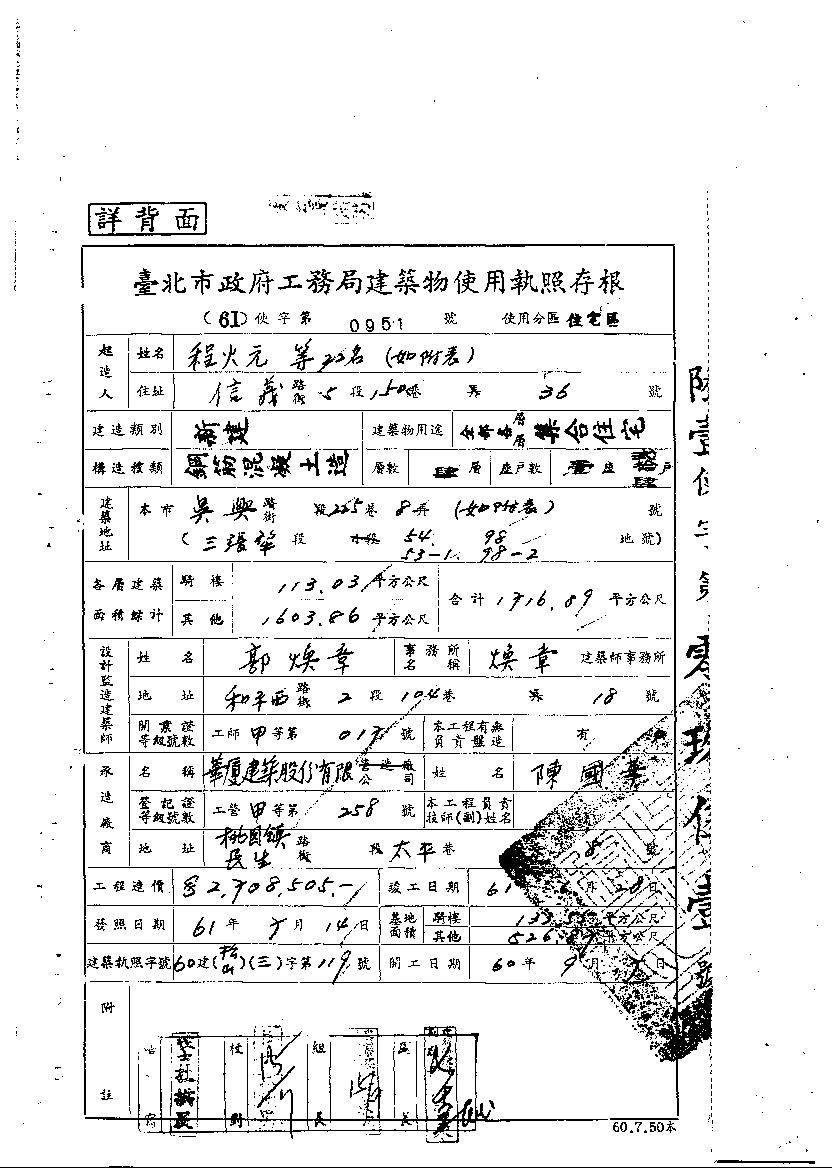 詳背面
臺北市政府工務局建築物使用執照存根
(61)使字第 0951 號 使用分區 住宅區
起造人 姓名 程火元 等22名 (如附表)
住址 信義 路街 5 段 150 巷 弄 36 號
建造類別 新建 建築物用途 全部各層 集合住宅
構造種類 鋼筋混凝土造 層數 肆 層 座戶數 座 戶
建築地址 本市 吳興 路街 段 225 巷 8 弄 (如附表) 號
(三張犂 段 54. 98 地號)
53-1. 98-2
各層建築面積綜計 騎樓 113.03 平方公尺 合計 1716.89 平方公尺
其他 1603.86 平方公尺
設計監造建築師 姓名 郭煥章 事務所名稱 煥章 建築師事務所
地址 和平西 路街 2 段 104 巷 弄 18 號
開業證等級號數 工師 甲 等第 017 號 本工程有無負責監造 有
承造廠商 名稱 華廈建築股份有限公司 姓名 陳國華
登記證等級號數 工營 甲 等第 258 號 本工程負責技師(副)姓名
地址 桃園鎮民生 路街 段 太平 巷 8 號
工程造價 2,708,505.- 竣工日期 61 年 6 月 28 日
發照日期 61 年 7 月 14 日 基地面積 騎樓 平方公尺
其他 平方公尺
建築執照字號 60建(松山)(三)字第119號 開工日期 60 年 9 月 日
附註
校對 組長 區長
60.7.50本